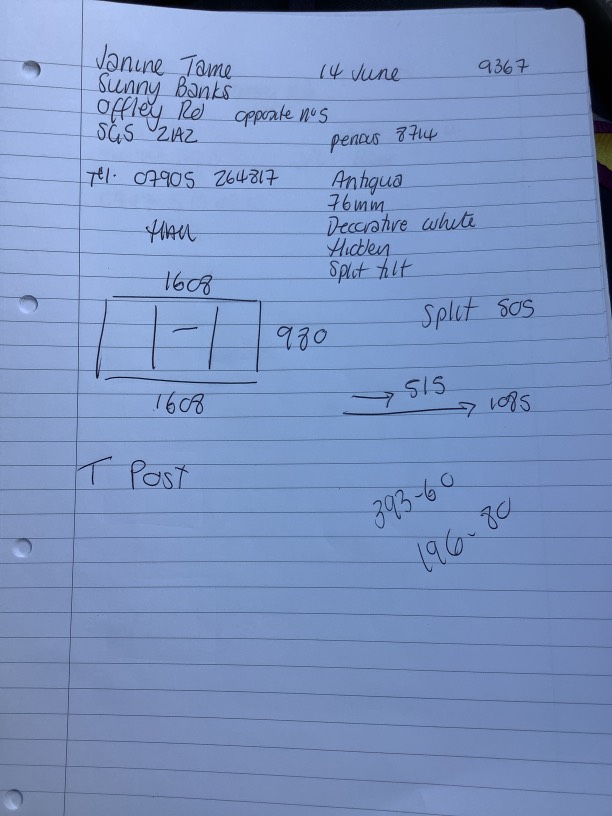 Janine Tame 14 June 9367
Sunny Banks
Offley Rd opposite no 5
SG5 2AZ
Tel. 07905 264817 Antiqua
76mm
Decorative white
Hidden
Split tilt
1608
Split 505
980
→ 515
→ 1085
1608
T Post
393-60
196-80